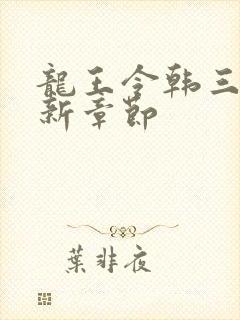 龍王令韩三
新章節
葉非夜